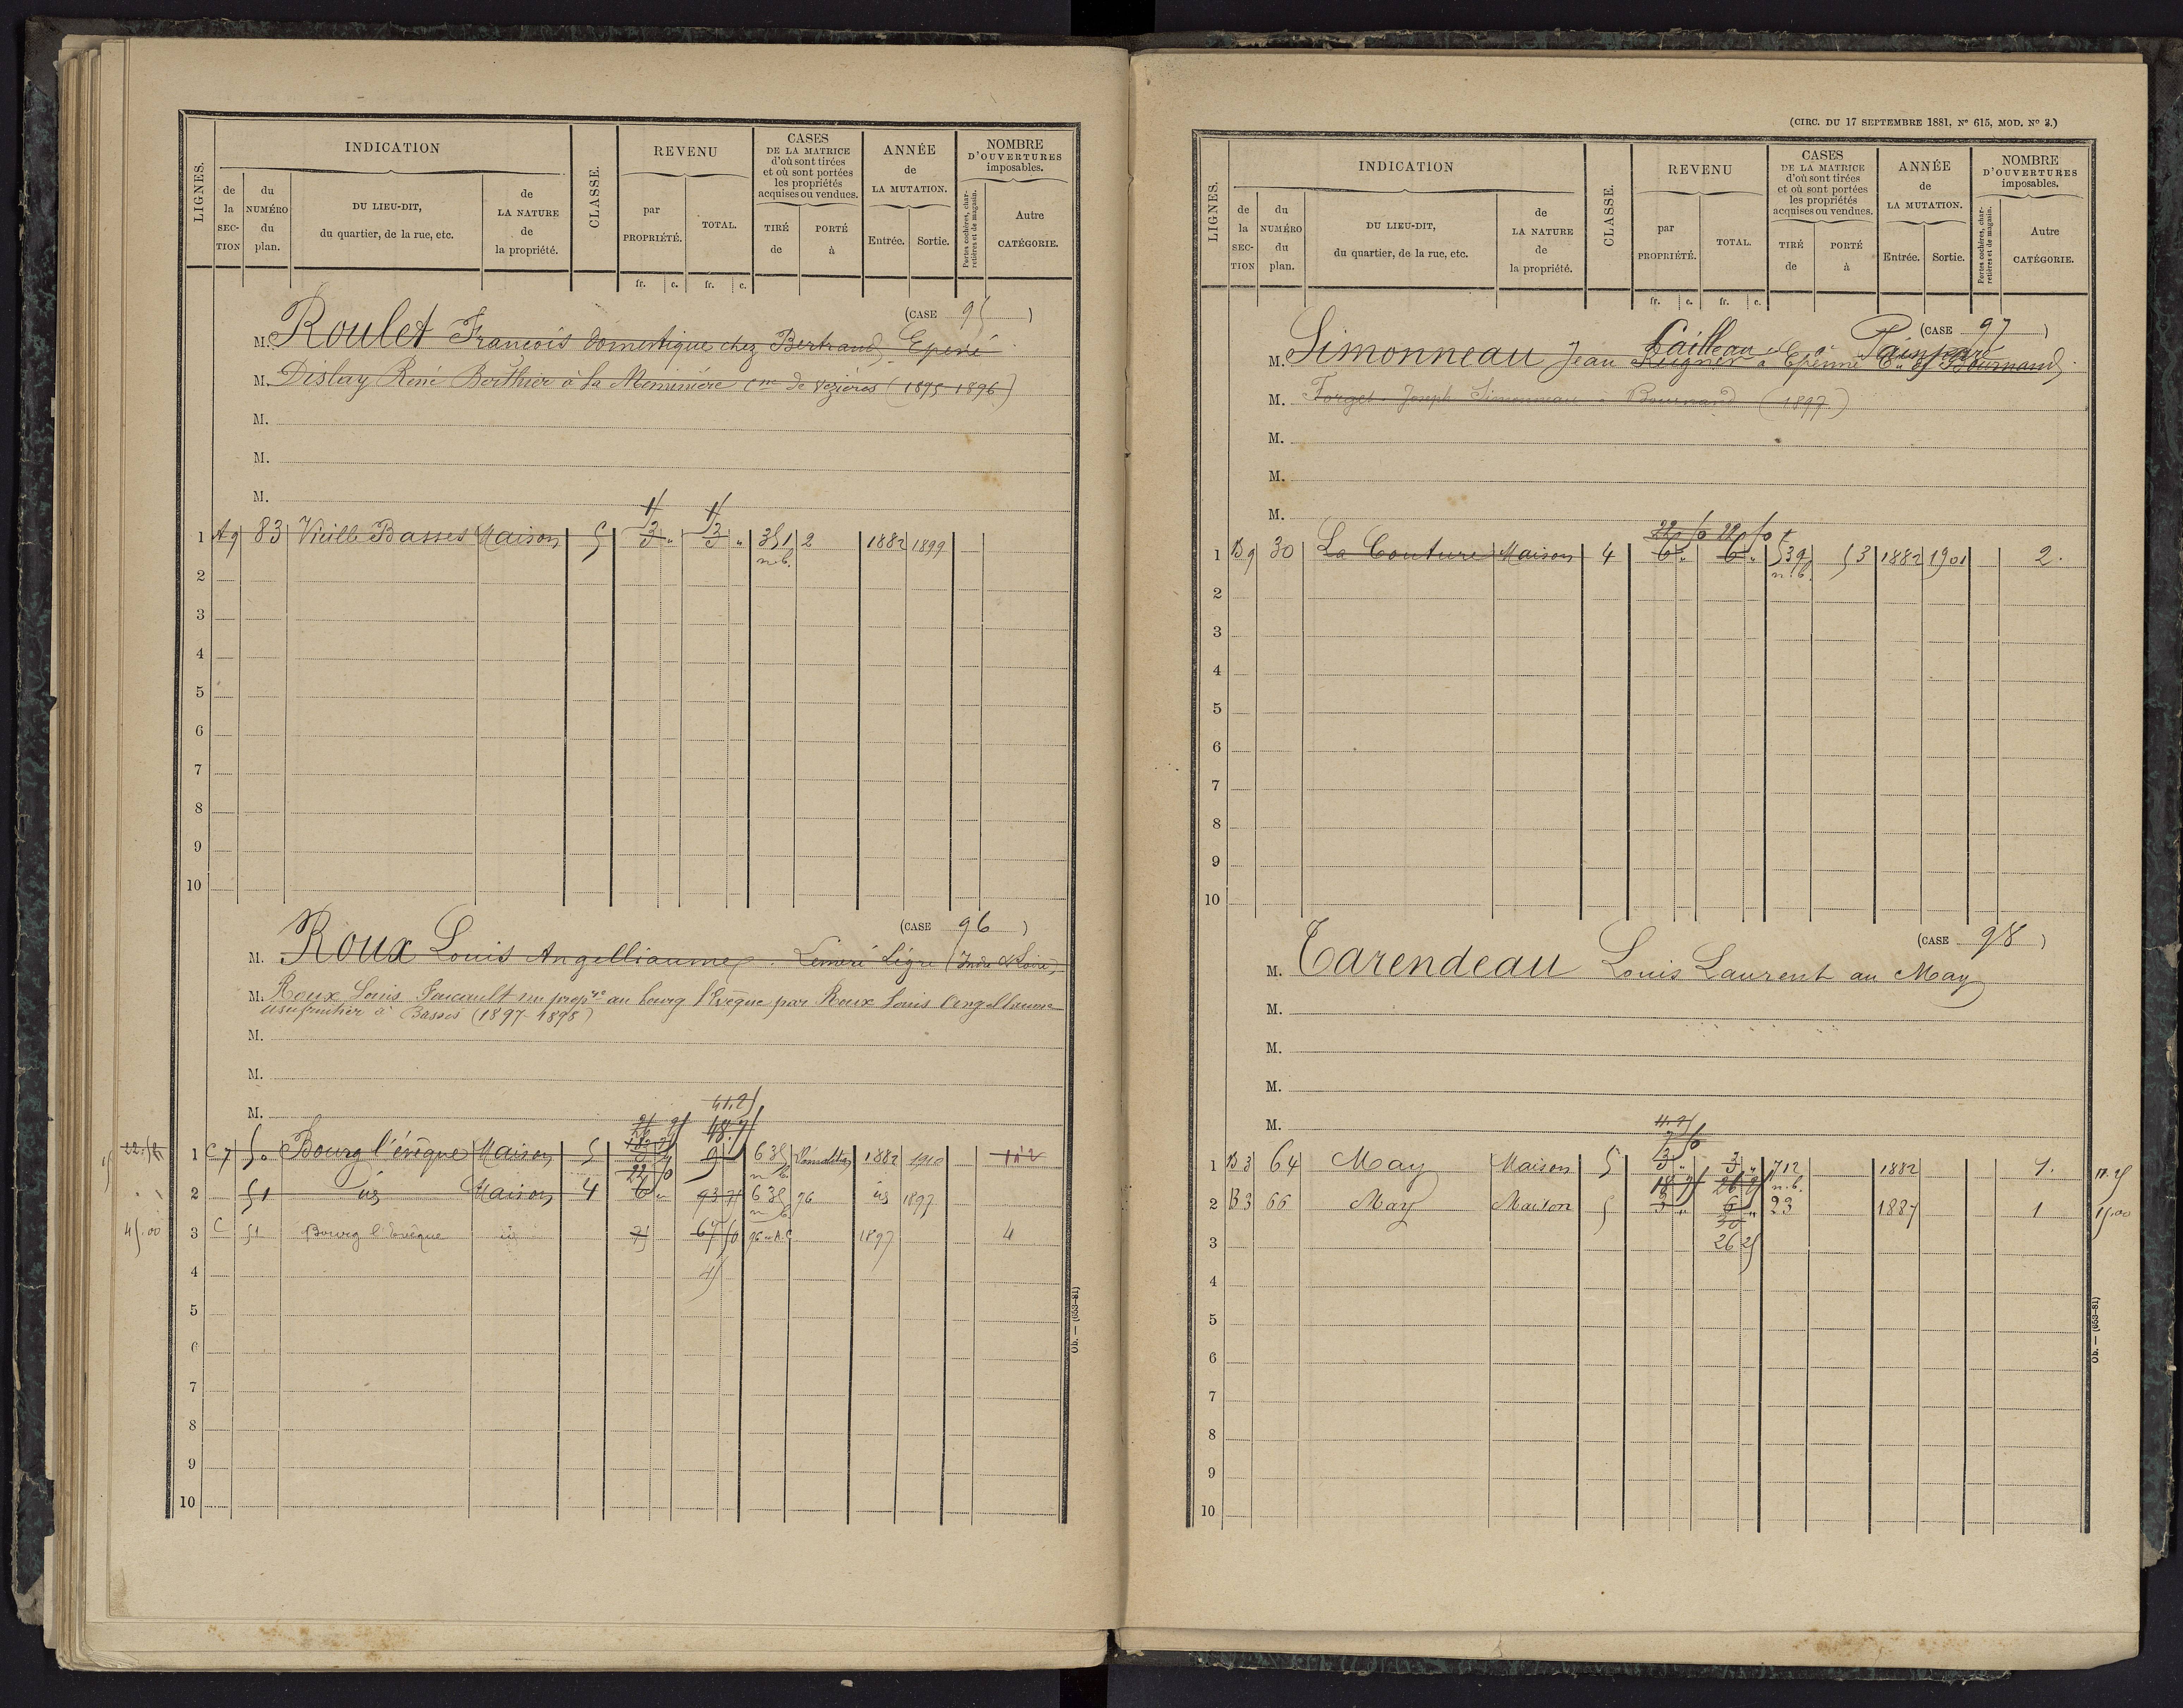 LIGNES.
INDICATION
de la SECTION
du NUMÉRO du plan.
DU LIEU-DIT, du quartier, de la rue, etc.
de LA NATURE de la propriété.
CLASSE.
REVENU
par PROPRIÉTÉ.
TOTAL.
CASES DE LA MATRICE d'où sont tirées et où sont portées les propriétés acquises ou vendues.
TIRÉ de
PORTÉ à
ANNÉE de LA MUTATION.
Entrée.
Sortie.
NOMBRE D'OUVERTURES imposables.
Portes cochères, charretières et de magasin.
Autre CATÉGORIE.
fr. c. fr. c.
(CASE 95)
M. Roulet François domestique chez Bertrand, Epevé
M. Dislay René Berthier à la cne de Vezières (1895-1896)
M.
M.
M.
1 A9 83 Vieille Basses Maison 5 3 " 3 " 351 n.b. 2 1882 1899
2
3
4
5
6
7
8
9
10
(CASE 96)
M. Roux Louis Angelliaume, Lémeré Ligré (Indre & Loire)
M. Roux Louis Foucault nu propre au bourg l'Evêque par Roux Louis Angelliaume
usufruitier à Basses (1897-1898)
M.
M.
M.
41.25
48.75
22.50 1 C7 50 Bourg l'évêque Maison 5 9 635 n.b. Démolition 1882 1910
22 50
2 51 id Maison 4 6 " 93 75 635 n.b. 96 id 1897
45.00 3 C 51 Bourg l'Evêque id 75 67 50 96 A.C 1897 4
4 45
5
6
7
8
9
10
Ob. — (653-81)
(CIRC. DU 17 SEPTEMBRE 1881, N° 615, MOD. N° 3.)
LIGNES.
INDICATION
de la SECTION
du NUMÉRO du plan.
DU LIEU-DIT, du quartier, de la rue, etc.
de LA NATURE de la propriété.
CLASSE.
REVENU
par PROPRIÉTÉ.
TOTAL.
CASES DE LA MATRICE d'où sont tirées et où sont portées les propriétés acquises ou vendues.
TIRÉ de
PORTÉ à
ANNÉE de LA MUTATION.
Entrée.
Sortie.
NOMBRE D'OUVERTURES imposables.
Portes cochères, charretières et de magasin.
Autre CATÉGORIE.
fr. c. fr. c.
(CASE 97)
M. Simonneau Jean Cailleau à Epenne Cne of Bournand
M. Forget Joseph Simonneau à Bournand (1897)
M.
M.
M.
22 50 22 50
1 B9 30 La Couture Maison 4 6 " 6 " 539 n.b. 53 1882 1901 2.
2
3
4
5
6
7
8
9
10
(CASE 98)
M. Tarendeau Louis Laurent au May
M.
M.
M.
M.
11.25
7 50
1 B3 64 May Maison 5 3 " 3 " 712 n.b. 1882 1. 11.25
18 75 26 25
2 B3 66 May Maison 5 3 " 6 " 23 1887 1 15.00
30
3 26 25
4
5
6
7
8
9
10
Ob. — (653-81)